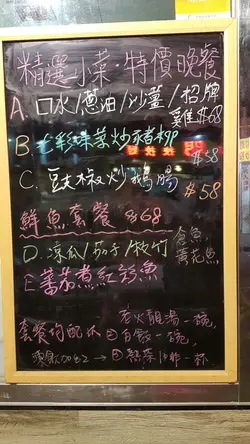 精選小菜·特價晚餐
A. 口水/蔥油/沙薑/招牌
雞 $68
B 七彩味菜炒豬柳
$58
C. 豉椒炒鵝腸
$58
鮮魚套餐 $68
D. 涼瓜/茄子/枝竹
倉魚
黃花魚
E. 蕃茄煮紅衫魚
套餐均配
① 老火靚湯一碗,
② 白飯一碗,
凍飲加$2 → ③ 熱茶 一杯